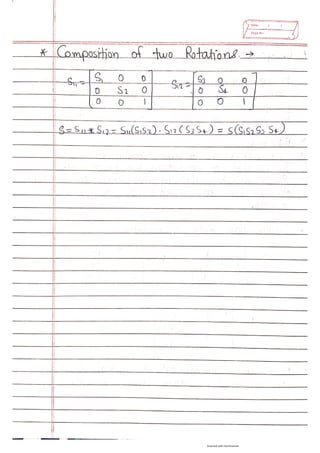 Date / /
Page No.
* Composition of two Rotations →
S₁₁ = [S₁ 0 0] S₁₂ = [S₃ 0 0]
[0 S₂ 0] [0 S₄ 0]
[0 0 1] [0 0 1]
S = S₁₁ * S₁₂ = S₁₁(S₁S₂) · S₁₂(S₃S₄) = S(S₁S₂S₃S₄)
Scanned with CamScanner